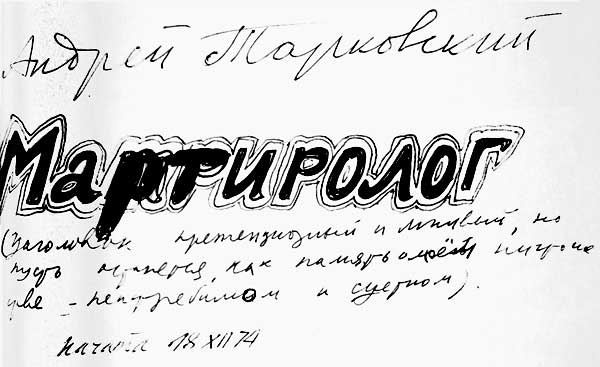 Андрей Тарковский
Мартиролог
(Заголовок претенциозный и лживый, но
пусть останется, как память о моём ничтоже
стве – неистребимом и суетном).
начата 18 XII 74